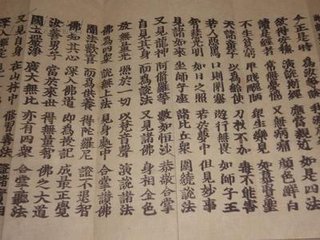 今正是時 為汝等說 我滅度後 求佛道者
欲得安隱 演說斯經 應當親近 如是四法
讀是經者 常無憂惱 又無病痛 顏色鮮白
不生貧窮 卑賤醜陋 衆生樂見 如慕賢聖
天諸童子 以為給使 刀杖不加 毒不能害
若人惡罵 口則閉塞 遊行無畏 如師子王
智慧光明 如日之照 若於夢中 但見妙事
見諸如來 坐師子座 諸比丘衆 圍繞説法
又見龍神 阿脩羅等 數如恒沙 恭敬合掌
自見其身 而為説法 又見諸佛 身相金色
放無量光 照於一切 以梵音聲 演説諸法
佛為四衆 説無上法 見身處中 合掌讚佛
聞法歡喜 而為供養 得陀羅尼 證不退智
佛知其心 深入佛道 即為授記 成最正覺
汝善男子 當於來世 得無量智 佛之大道
國土嚴淨 廣大無比 亦有四衆 合掌聽法
又見自身 在山林中 修習善法 證諸實相
深入禪定 見十方佛